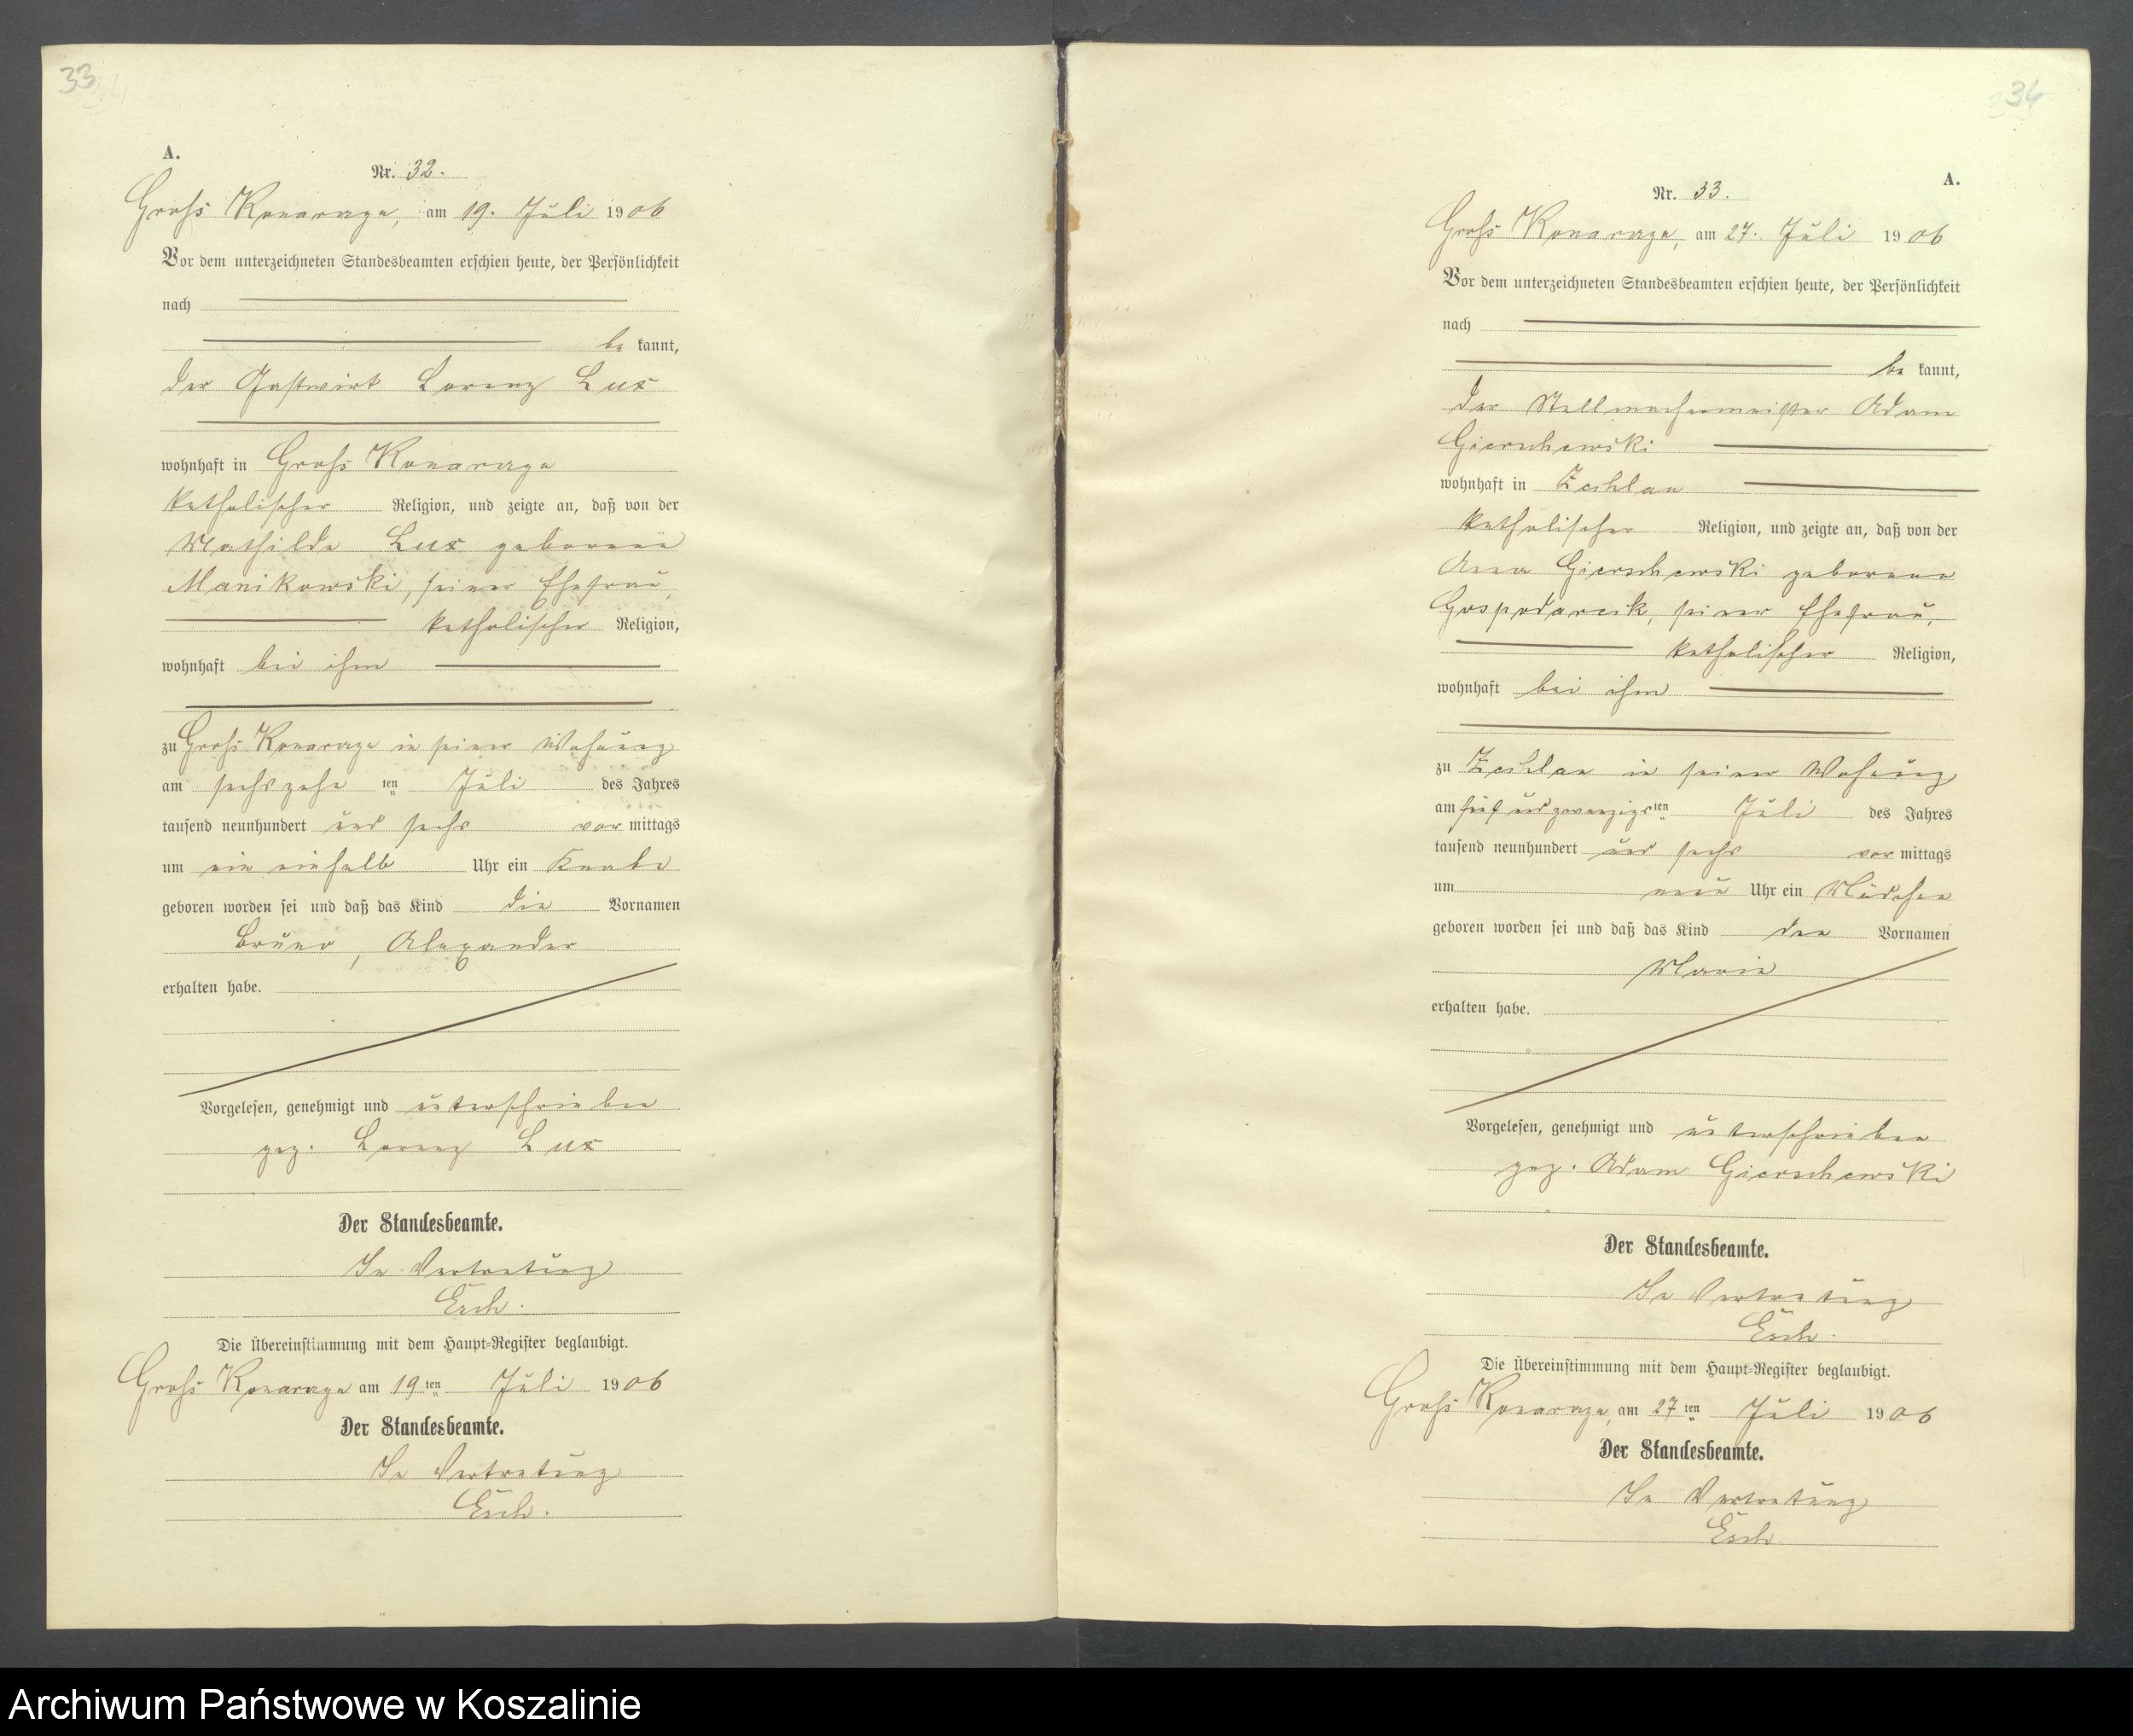 33
A.
Nr. 32.
Groß Konarczyn, am 19. Juli 1906
Vor dem unterzeichneten Standesbeamten erschien heute, der Persönlichkeit
nach
be kannt,
der Gastwirt Lorenz Lux
wohnhaft in Groß Konarczyn
katholischer Religion, und zeigte an, daß von der
Mathilde Lux geborene
Manikowski, seiner Ehefrau,
katholischer Religion,
wohnhaft bei ihm
zu Groß Konarczyn in seiner Wohnung
am sechszehn ten Juli des Jahres
tausend neunhundert und sechs vor mittags
um ein einhalb Uhr ein Knabe
geboren worden sei und daß das Kind die Vornamen
Bruno, Alexander
erhalten habe.
Vorgelesen, genehmigt und unterschrieben
gez. Lorenz Lux
Der Standesbeamte.
In Vertretung
Esch.
Die Übereinstimmung mit dem Haupt-Register beglaubigt.
Groß Konarczyn am 19 ten Juli 1906
Der Standesbeamte.
In Vertretung
Esch.
34
A.
Nr. 33.
Groß Konarczyn, am 27. Juli 1906
Vor dem unterzeichneten Standesbeamten erschien heute, der Persönlichkeit
nach
be kannt,
der Stellmachermeister Adam
Gierschewski
wohnhaft in Zechlau
katholischer Religion, und zeigte an, daß von der
Anna Gierschewski geborene
seiner Ehefrau,
katholischer Religion,
wohnhaft bei ihm
zu Zechlau in seiner Wohnung
am fünf und zwanzigsten Juli des Jahres
tausend neunhundert und sechs vor mittags
um neun Uhr ein Mädchen
geboren worden sei und daß das Kind den Vornamen
Marie
erhalten habe.
Vorgelesen, genehmigt und unterschrieben
gez. Adam Gierschewski
Der Standesbeamte.
In Vertretung
Esch.
Die Übereinstimmung mit dem Haupt-Register beglaubigt.
Groß Konarczyn, am 27 ten Juli 1906
Der Standesbeamte.
In Vertretung
Esch.
Archiwum Państwowe w Koszalinie